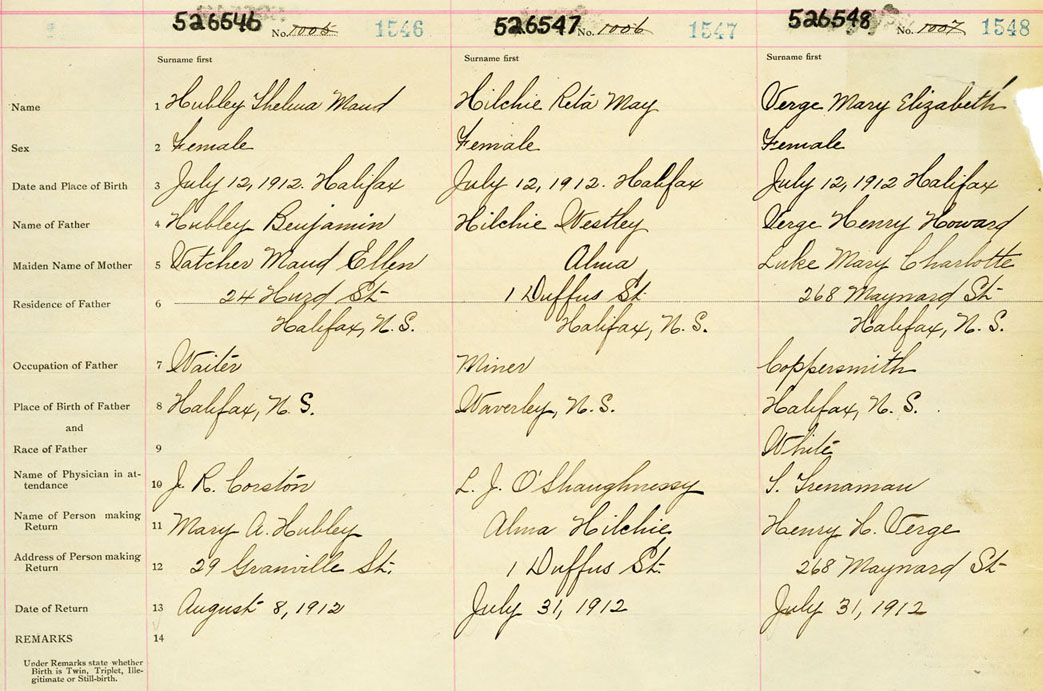 526546 No. 1005 1546 526547 No. 1006 1547 526548 No. 1007 1548
Surname first Surname first Surname first
Name 1 Hubley Thelma Maud Hilchie Reta May Verge Mary Elizabeth
Sex 2 Female Female Female
Date and Place of Birth 3 July 12, 1912. Halifax July 12, 1912. Halifax July 12, 1912 Halifax
Name of Father 4 Hubley Benjamin Hilchie Westley Verge Henry Howard
Maiden Name of Mother 5 Vatcher Maud Ellen Alma Luke Mary Charlotte
Residence of Father 6 24 Hurd St. 1 Duffus St. 268 Maynard St.
Halifax, N.S. Halifax, N.S. Halifax, N.S.
Occupation of Father 7 Waiter Miner Coppersmith
Place of Birth of Father 8 Halifax, N.S. Waverley, N.S. Halifax, N.S.
and
Race of Father 9 White
Name of Physician in at-
tendance 10 J. R. Corston L. J. O'Shaughnessy S. Trenaman
Name of Person making
Return 11 Mary A. Hubley Alma Hilchie Henry H. Verge
Address of Person making
Return 12 29 Granville St. 1 Duffus St. 268 Maynard St.
Date of Return 13 August 8, 1912 July 31, 1912 July 31, 1912
REMARKS 14
Under Remarks state whether
Birth is Twin, Triplet, Ille-
gitimate or Still-birth.